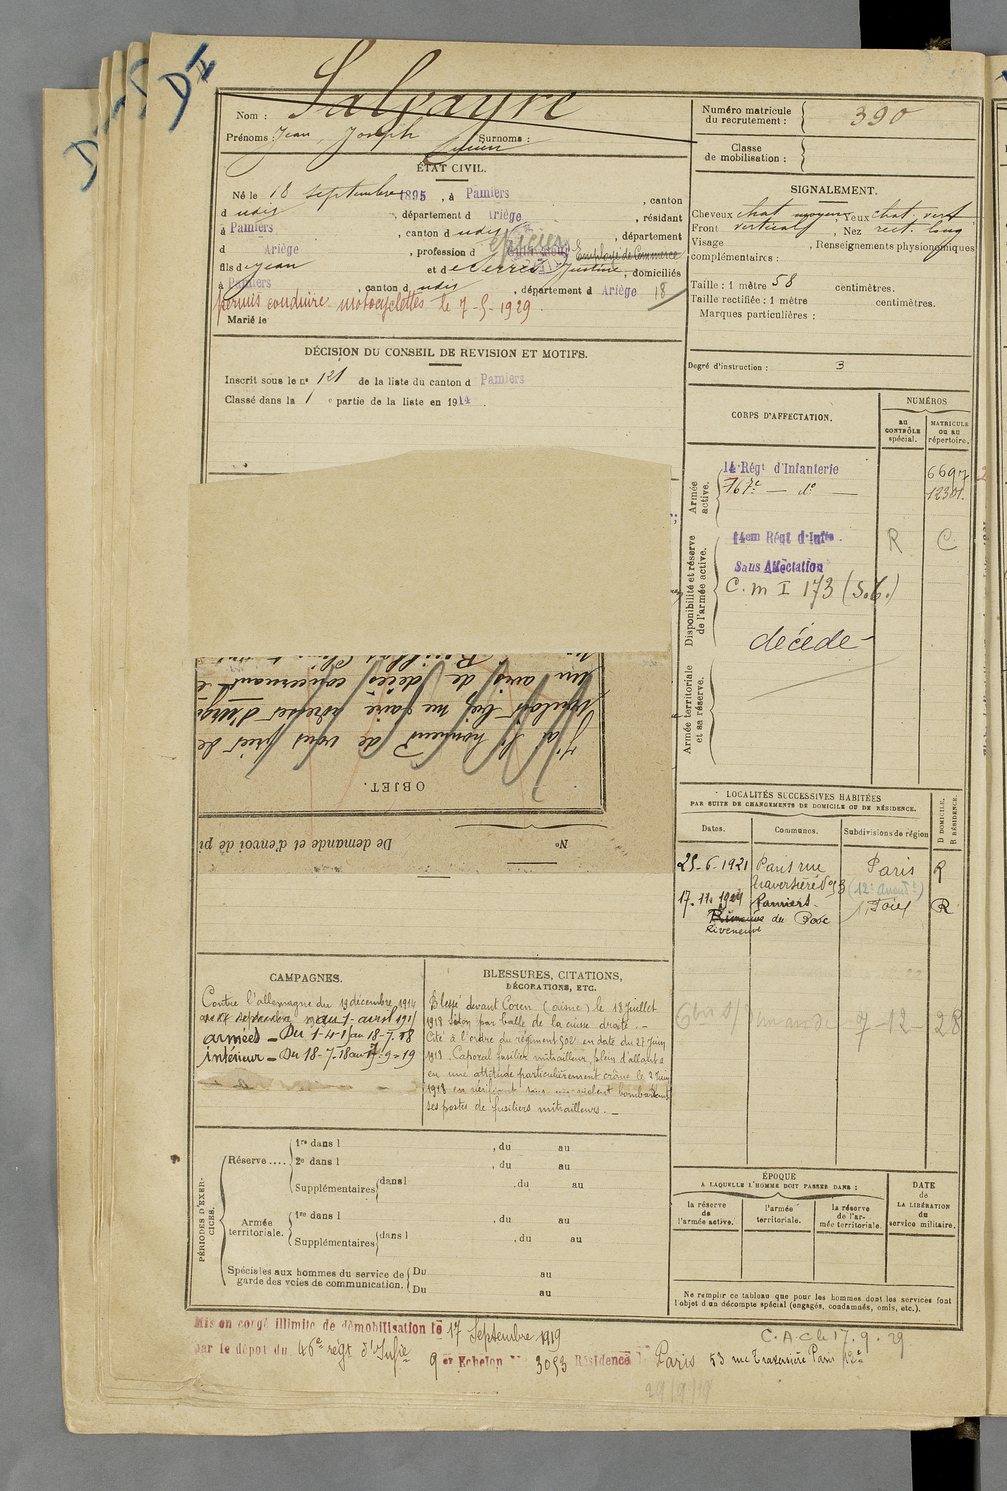 D I
Nom : Salvayre
Prénoms : Jean Joseph Surnoms :
Lucien
ÉTAT CIVIL.
Né le 18 septembre 1895, à Pamiers, canton
d udis, département d Ariège, résidant
à Pamiers, canton d udis, département
d Ariège, profession d épicier Employé de Commerce
fils de Jean et de Serres Justine, domiciliés
à Pamiers, canton d udis, département d Ariège 18
permis conduire motocyclettes le 7-5-1929.
Marié le
DÉCISION DU CONSEIL DE REVISION ET MOTIFS.
Inscrit sous le nº 121 de la liste du canton d Pamiers
Classé dans la 1 e partie de la liste en 1914.
Numéro matricule
du recrutement : 390
Classe
de mobilisation :
SIGNALEMENT.
Cheveux chat moyen, Yeux chat. vert
Front vertical, Nez rect. long
Visage, Renseignements physionomiques
complémentaires :
Taille : 1 mètre 58 centimètres.
Taille rectifiée : 1 mètre centimètres.
Marques particulières :
Degré d'instruction : 3
CORPS D'AFFECTATION.
NUMÉROS
AU CONTRÔLE spécial.
MATRICULE OU AU répertoire.
Armée active.
14 Régt d'Infanterie 6697
167e — do — 12301.
Disponibilité et réserve de l'armée active.
14em Régt d'Infie. R C
Sans Affectation
C. m I 173 (S.C.)
décédé
Armée territoriale et sa réserve.
J'ai l'honneur de vous prier de
vouloir bien me faire adresser d'urgence
un avis de décès concernant l
OBJET.
De demande et d'envoi de pi
Nº
LOCALITÉS SUCCESSIVES HABITÉES
PAR SUITE DE CHANGEMENTS DE DOMICILE OU DE RÉSIDENCE.
D DOMICILE.
R RÉSIDENCE.
Dates. Communes. Subdivisions de région
25-6-1921 Paris rue Paris R
Traversière No 53 (12e arrondt)
17.11.1924 Pamiers Foix R
Rimeuve du Bosc
Riveneuve
7-12-28
CAMPAGNES.
Contre l'allemagne du 19 décembre 1914
au 1-avril 1917
armées - Du 1-4-17 au 18-7.18
intérieur - Du 18-7.18 au 17-9-19
BLESSURES, CITATIONS,
DÉCORATIONS, ETC.
Blessé devant Corcy (aisne) le 18 Juillet
1918 Séton par balle de la cuisse droite. -
Cité à l'ordre du régiment 502 en date du 27 Juin
1918. Caporal fusilier mitrailleur, plein d'allant &
en une attitude particulièrement crâne le 2 Juin
1918 en vérifiant sous un violent bombardemt
ses postes de fusiliers mitrailleurs. -
PÉRIODES D'EXERCICES.
Réserve.... 1re dans l, du au
2e dans l, du au
Supplémentaires dans l, du au
Armée territoriale. 1re dans l, du au
Supplémentaires dans l, du au
Spéciales aux hommes du service de garde des voies de communication. Du au
Du au
ÉPOQUE
A LAQUELLE L'HOMME DOIT PASSER DANS :
la réserve de l'armée active.
l'armée territoriale.
la réserve de l'armée territoriale.
DATE de LA LIBÉRATION du service militaire.
Ne remplir ce tableau que pour les hommes dont les services font
l'objet d'un décompte spécial (engagés, condamnés, omis, etc.).
Mis en congé illimité de démobilisation le 17 Septembre 1919
par le dépot du 46e régt d'Infie 9 er Echelon Nº 3053 Résidence Paris 53 rue Traversière Paris 12e
C.A.C le 17.9.29
29/9/19